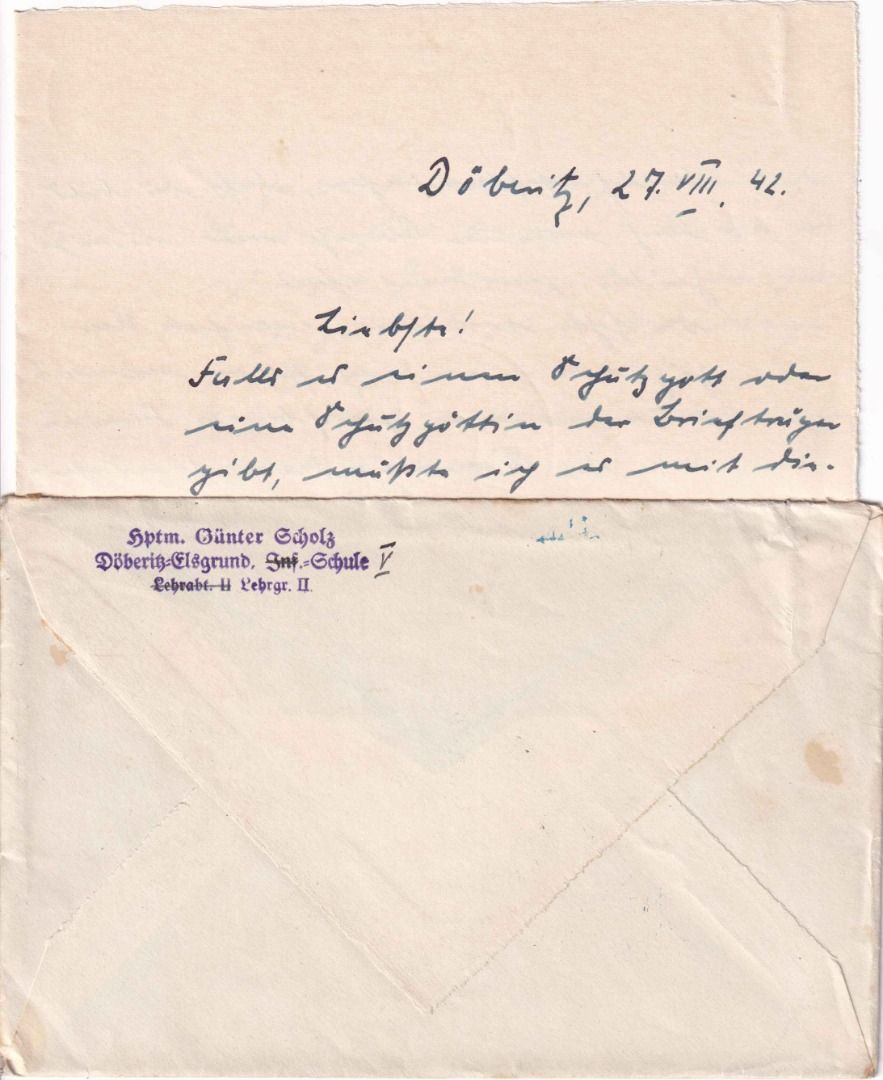 Döberitz, 27. VIII. 42.
Liebste!
Falls es einen Schutzgott oder
eine Schutzgöttin der Briefträger
gibt, müßte ich es mit die-
Hptm. Günter Scholz
Döberitz-Elsgrund, Inf.-Schule V
Lehrabt. II Lehrgr. II.